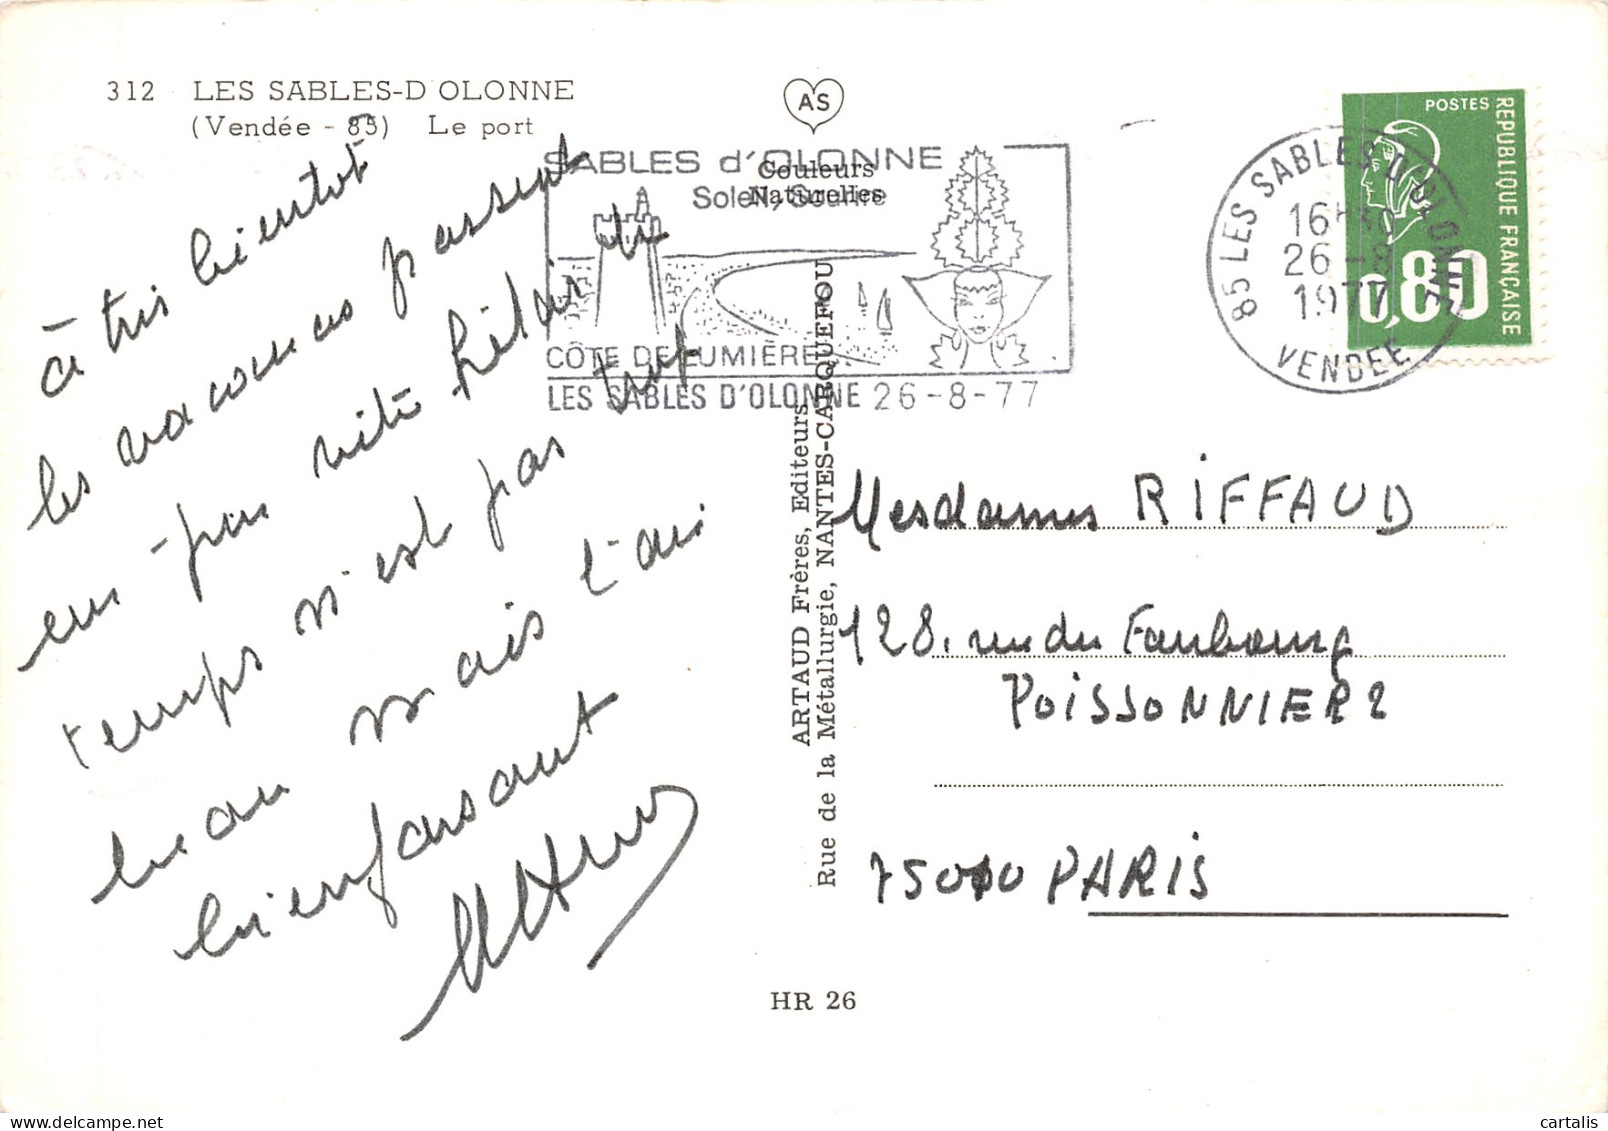 312 LES SABLES-D OLONNE
(Vendée - 85) Le port
AS
Couleurs
Naturelles
SABLES d'OLONNE
Soleil, Sourire
CÔTE DE LUMIERE
LES SABLES D'OLONNE 26-8-77
85 LES SABLES D'OLONNE
16H30
26-8
1977
VENDEE
POSTES
REPUBLIQUE FRANÇAISE
0,80
à tres bientôt
les vacances passent
un peu vite hélas le
temps n'est pas trop
beau mais l'air
bienfaisant
ARTAUD Frères, Editeurs
Rue de la Métallurgie, NANTES-CARQUEFOU
Mesdames RIFFAUD
128. rue du Faubourg
POISSONNIERE
75010 PARIS
HR 26
cartalis
delcampe.net